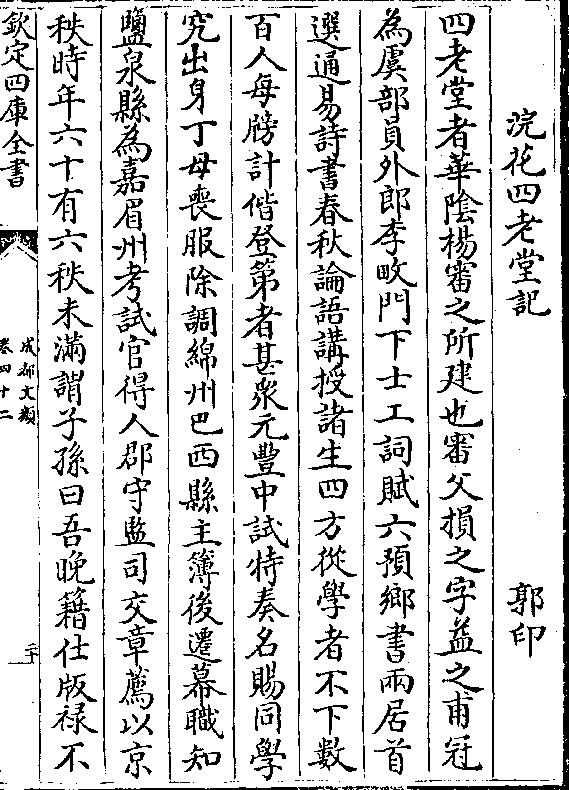 浣花四老堂記　郭印
四老堂者華陰楊審之所建也審父損之字益之甫冠
為虞部員外郎李畋門下士工詞賦六預鄉書兩居首
選通易詩書春秋論語講授諸生四方從學者不下數
百人每牓計偕登第者甚衆元豐中試特奏名賜同學
究出身丁母喪服除調綿州巴西縣主簿後遷幕職知
鹽泉縣為嘉眉州考試官得人郡守監司交章薦以京
秩時年六十有六秩未滿謂子孫曰吾晚籍仕版禄不
欽定四庫全書
成都文類
卷四十二
二十